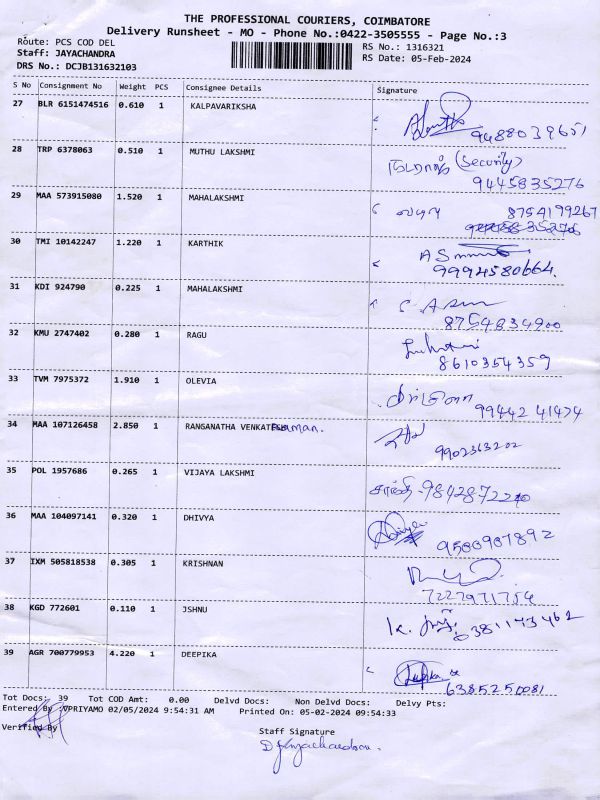 THE PROFESSIONAL COURIERS, COIMBATORE
Delivery Runsheet - MO - Phone No.:0422-3505555 - Page No.:3
Route: PCS COD DEL
RS No.: 1316321
Staff: JAYACHANDRA
RS Date: 05-Feb-2024
DRS No.: DCJB131632103
S No Consignment No Weight PCS Consignee Details Signature
27 BLR 6151474516 0.610 1 KALPAVARIKSHA
9488039651
28 TRP 6378063 0.510 1 MUTHU LAKSHMI
(Security)
9445835276
29 MAA 573915080 1.520 1 MAHALAKSHMI
8754199267
30 TMI 10142247 1.220 1 KARTHIK
9994580664.
31 KDI 924790 0.225 1 MAHALAKSHMI
8754834900
32 KMU 2747402 0.280 1 RAGU
8610354359
33 TVM 7975372 1.910 1 OLEVIA
99442 41474
34 MAA 107126458 2.850 1 RANGANATHA VENKATE
9902363202
35 POL 1957686 0.265 1 VIJAYA LAKSHMI
சாந்தி
36 MAA 104097141 0.320 1 DHIVYA
9500907892
37 IXM 505818538 0.305 1 KRISHNAN
38 KGD 772601 0.110 1 JSHNU
39 AGR 700779953 4.220 1 DEEPIKA
6385250081
Tot Docs: 39 Tot COD Amt: 0.00 Delvd Docs: Non Delvd Docs: Delvy Pts:
Entered By VPRIYAMO 02/05/2024 9:54:31 AM Printed On: 05-02-2024 09:54:33
Verified By
Staff Signature